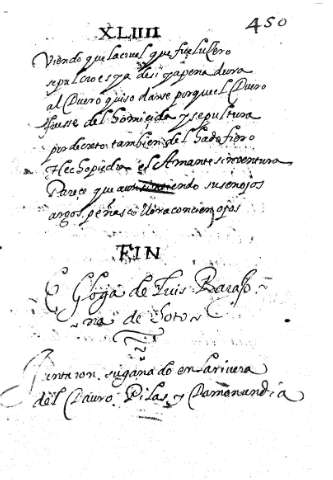 450
XLIIII
Viendo que la cruel que fue lucero
sepulcro es ya de si y apena dura
al Duero quiso darse porque el Duero
fuesse del homicida y sepultura
por decreto tambien del hado fiero
Hecho piedra el Amante sin ventura
Parece que endo sus enojos
argos peñasco llora con cien ojos
FIN
Egloga de Luis Baraho
na de Soto
Juntaron su ganado en la rivera
del Dauro Pilas y Damon un dia